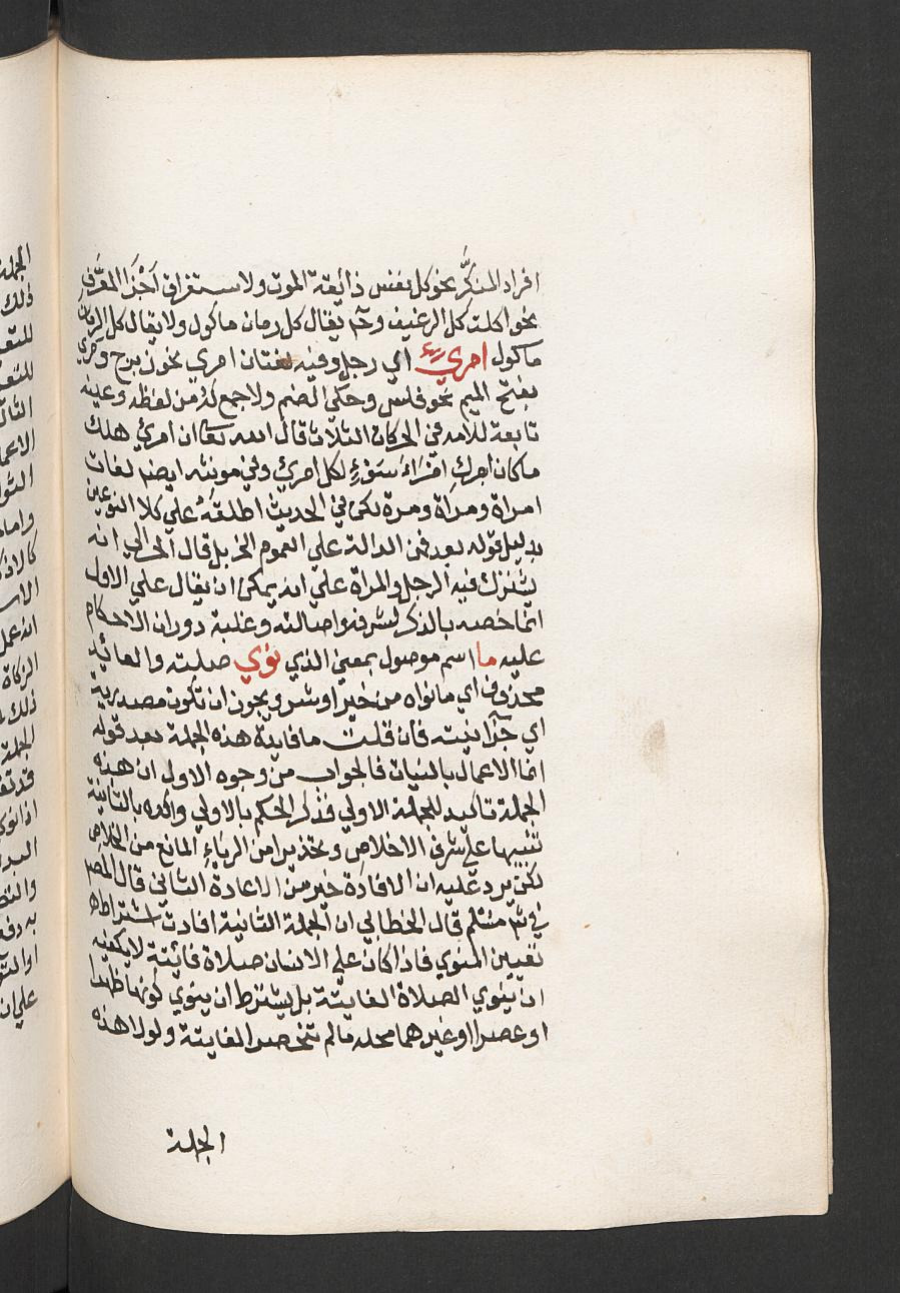 افراد المنكَّر نحو كل نفس ذائقة الموت ولاستغراق اجزا المعرَّف
نحو اكلت كل الرغيف وحـ يقال كل رمان ماكول ولا يقال كل الرمان
ماكول امريء اي رجل وفيه لغتان امري نحو زبرج ومرئ
بفتح الميم نحو فلس وحكي الضم ولا جمع له من لفظه وعينه
تابعة للامه في الحركات الثلاث قال الله تعا ان امرئ هلك
ما كان ابوك امرَاءَ سَوْءٍ لكل امرئ وفي مونثه ايضا لغات
امراة ومراة ومرة لكن في الحديث اطلقه علي كلا النوعين
بدليل قوله بعد فمن الدالة علي العموم الخ بل قال الحرالي انه
يشترك فيه الرجل والمراة علي انه يمكن ان يقال علي الاول
انما خصه بالذكر لشرفه واصالته وغلبة دوران الاحكام
عليه ما اسم موصول بمعني الذي نوي صلته والعائد
محذوف اي ما نواه من خير او شر ويجوز ان تكون مصدرية
اي جزآ نيته فان قلت ما فايدة هذه الجملة بعد قوله
انما الاعمال بالنيات فالجواب من وجوه الاول ان هذه
الجملة تاكيد للجملة الاولي فذكر الحكم بالاولي واكده بالثانية
تنبيها علي شرف الاخلاص وتحذيرا من الرياءِ المانع من الخلاص
لكن يرد عليه ان الافادة خير من الاعادة الثاني قال المصـ
في شـ مسلم قال الخطابي ان الجملة الثانية افادت اشتراط
تعيين المنوي فاذا كان علي الانسان صلاة فائتة لا يكفيه
ان ينوي الصلاة الفايتة بل يشترط ان ينوي كونها ظهرا
او عصرا او غيرهما محله ما لم تنحصر الفايتة ولولا هذه
الجملة